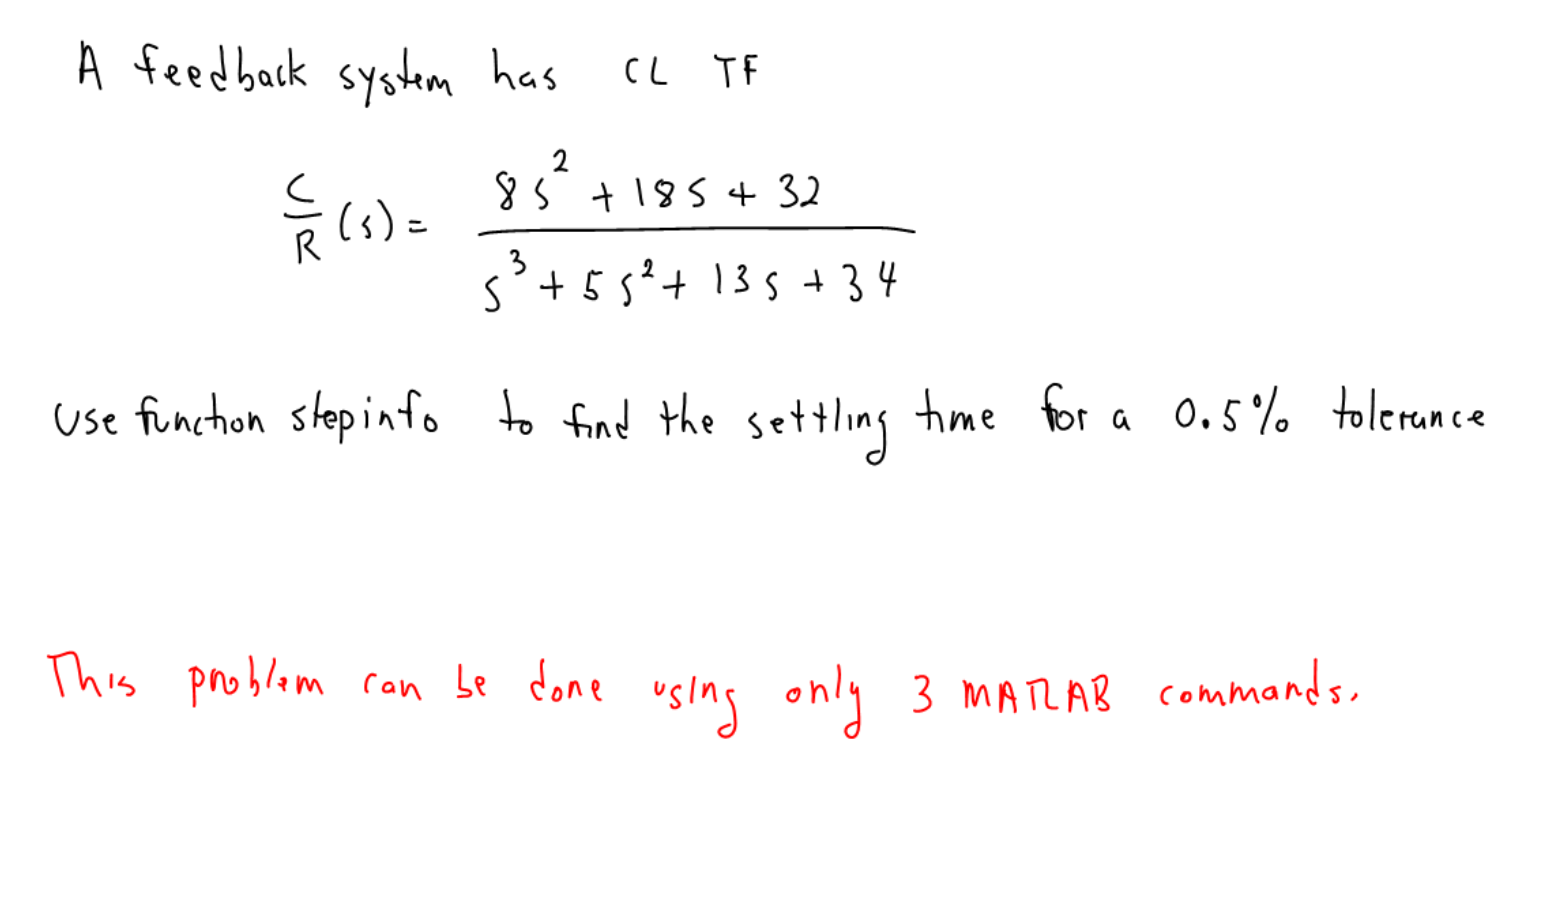 A feedback system has CL TF
C/R (s) = (8s² + 18s + 32) / (s³ + 5s² + 13s + 34)
Use function stepinfo to find the settling time for a 0.5% tolerance
This problem can be done using only 3 MATLAB commands.